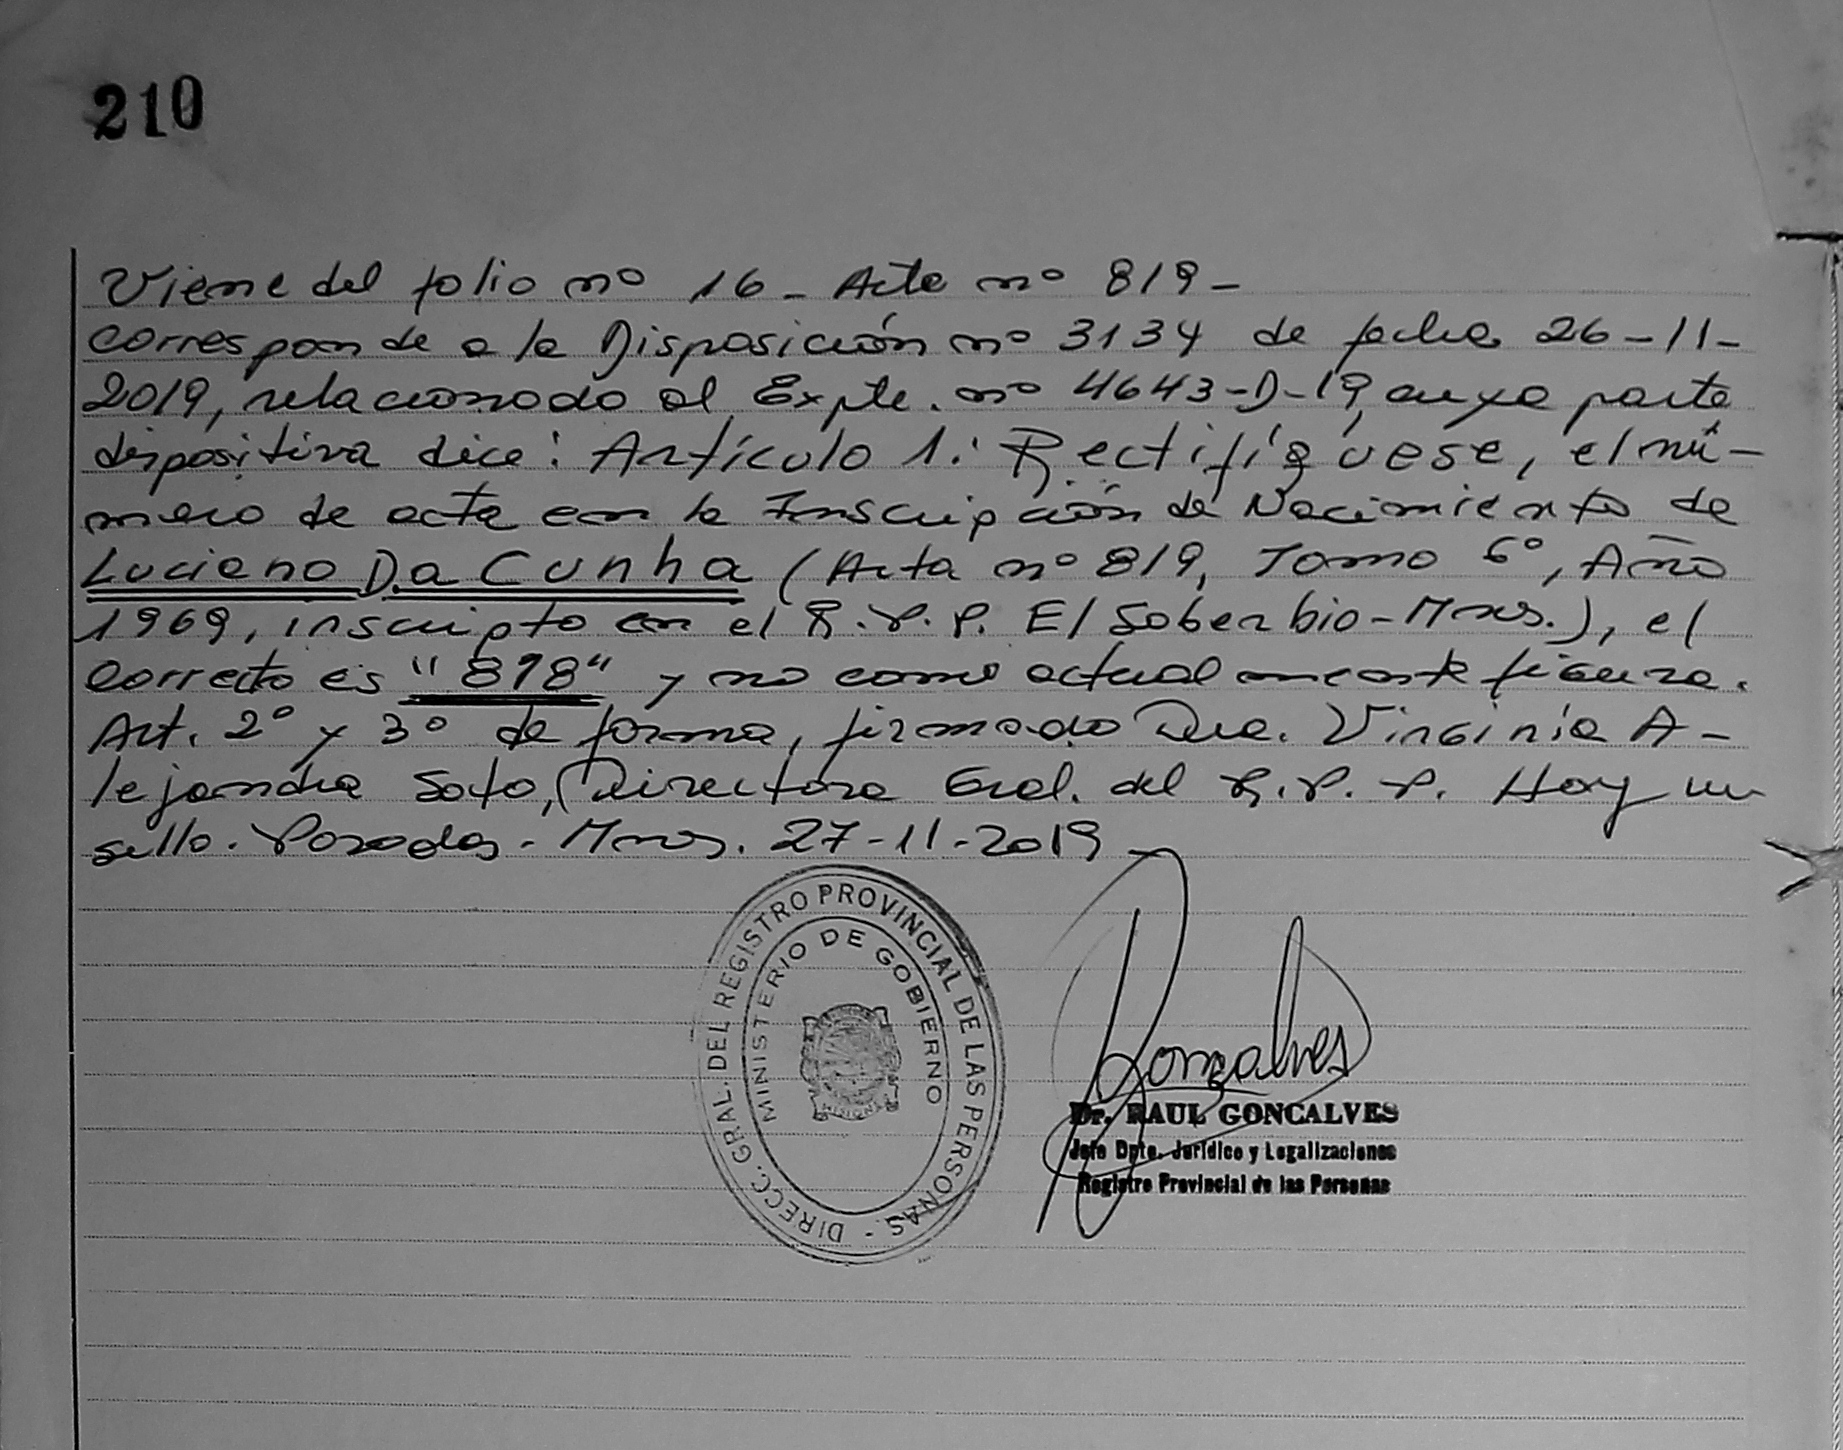 210
Viene del folio nº 16 - Acta nº 819 -
Corresponde a la Disposición nº 3134 de fecha 26-11-
2019, relacionado al Expte. nº 4643-D-19, cuya parte
dispositiva dice: Artículo 1: Rectifíquese, el nú-
mero de acta en la Inscripción de Nacimiento de
Luciano Da Cunha (Acta nº 819, Tomo 6º, Año
1969, inscripto en el R.P.P. El Soberbio-Mnes.), el
correcto es "898" y no como actualmente figura.
Art. 2º y 3º de forma, firmado Dra. Virginia A-
lejandra Soto, Directora Gral. del R.P.P. Hay un
sello. Posadas - Mnes. 27-11-2019
DIRECC. GRAL. DEL REGISTRO PROVINCIAL DE LAS PERSONAS -
MINISTERIO DE GOBIERNO
MISIONES
Gonzalves
Dr. RAUL GONCALVES
Jefe Dpto. Jurídico y Legalizaciones
Registro Provincial de las Personas